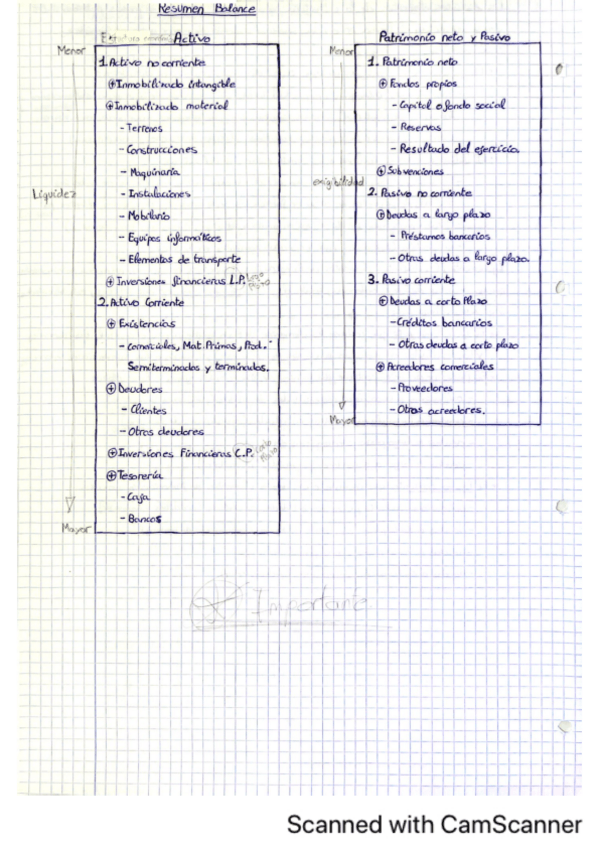 Resumen Balance
Activo
Menor
1. Activo no corriente
⊕ Inmobilizado intangible
⊕ Inmobilizado material
- Terrenos
- Construcciones
- Maquinaria
Liquidez
- Instalaciones
- Mobiliario
- Equipos informáticos
- Elementos de transporte
⊕ Inversiones financieras L.P. Largo Plazo
2. Activo Corriente
⊕ Existencias
- Comerciales, Mat. Primas, Prod.
Semiterminados y terminados.
⊕ Deudores
- Clientes
- Otros deudores
⊕ Inversiones Financieras C.P. Corto Plazo
⊕ Tesorería
- Caja
- Bancos
Mayor
Patrimonio neto y Pasivo
Menor
1. Patrimonio neto
⊕ Fondos propios
- Capital o fondo social
- Reservas
- Resultado del ejercicio
⊕ Subvenciones
exigibilidad
2. Pasivo no corriente
⊕ Deudas a largo plazo
- Préstamos bancarios
- Otras deudas a largo plazo.
3. Pasivo corriente
⊕ Deudas a corto Plazo
- Créditos bancarios
- Otras deudas a corto plazo
⊕ Acreedores comerciales
- Proveedores
- Otros acreedores.
Mayor
Importante
Scanned with CamScanner